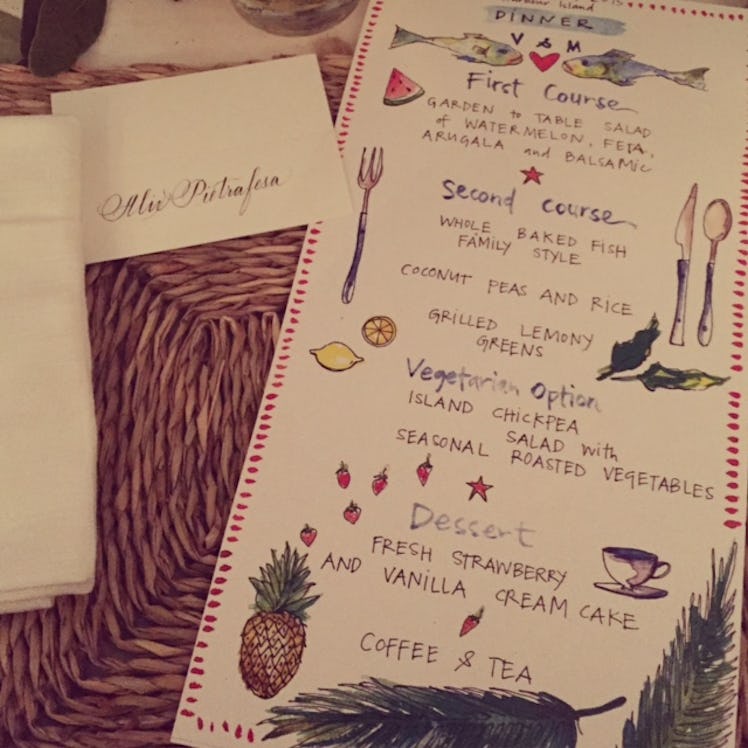 2015
Harbour Island
DINNER
V & M
First Course
GARDEN to TABLE SALAD
of WATERMELON, FETA,
ARUGALA and BALSAMIC
Second Course
WHOLE BAKED FISH
FAMILY STYLE
COCONUT PEAS AND RICE
GRILLED LEMONY
GREENS
Vegetarian Option
ISLAND CHICKPEA
SALAD with
SEASONAL ROASTED VEGETABLES
Dessert
FRESH STRAWBERRY
AND VANILLA CREAM CAKE
COFFEE & TEA
Pietrafesa